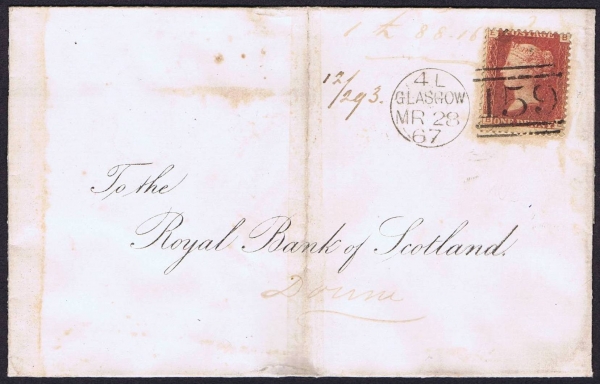 12/293.
4 L
GLASGOW
MR 28
67
159
ONE PENNY
To the
Royal Bank of Scotland.
Doune